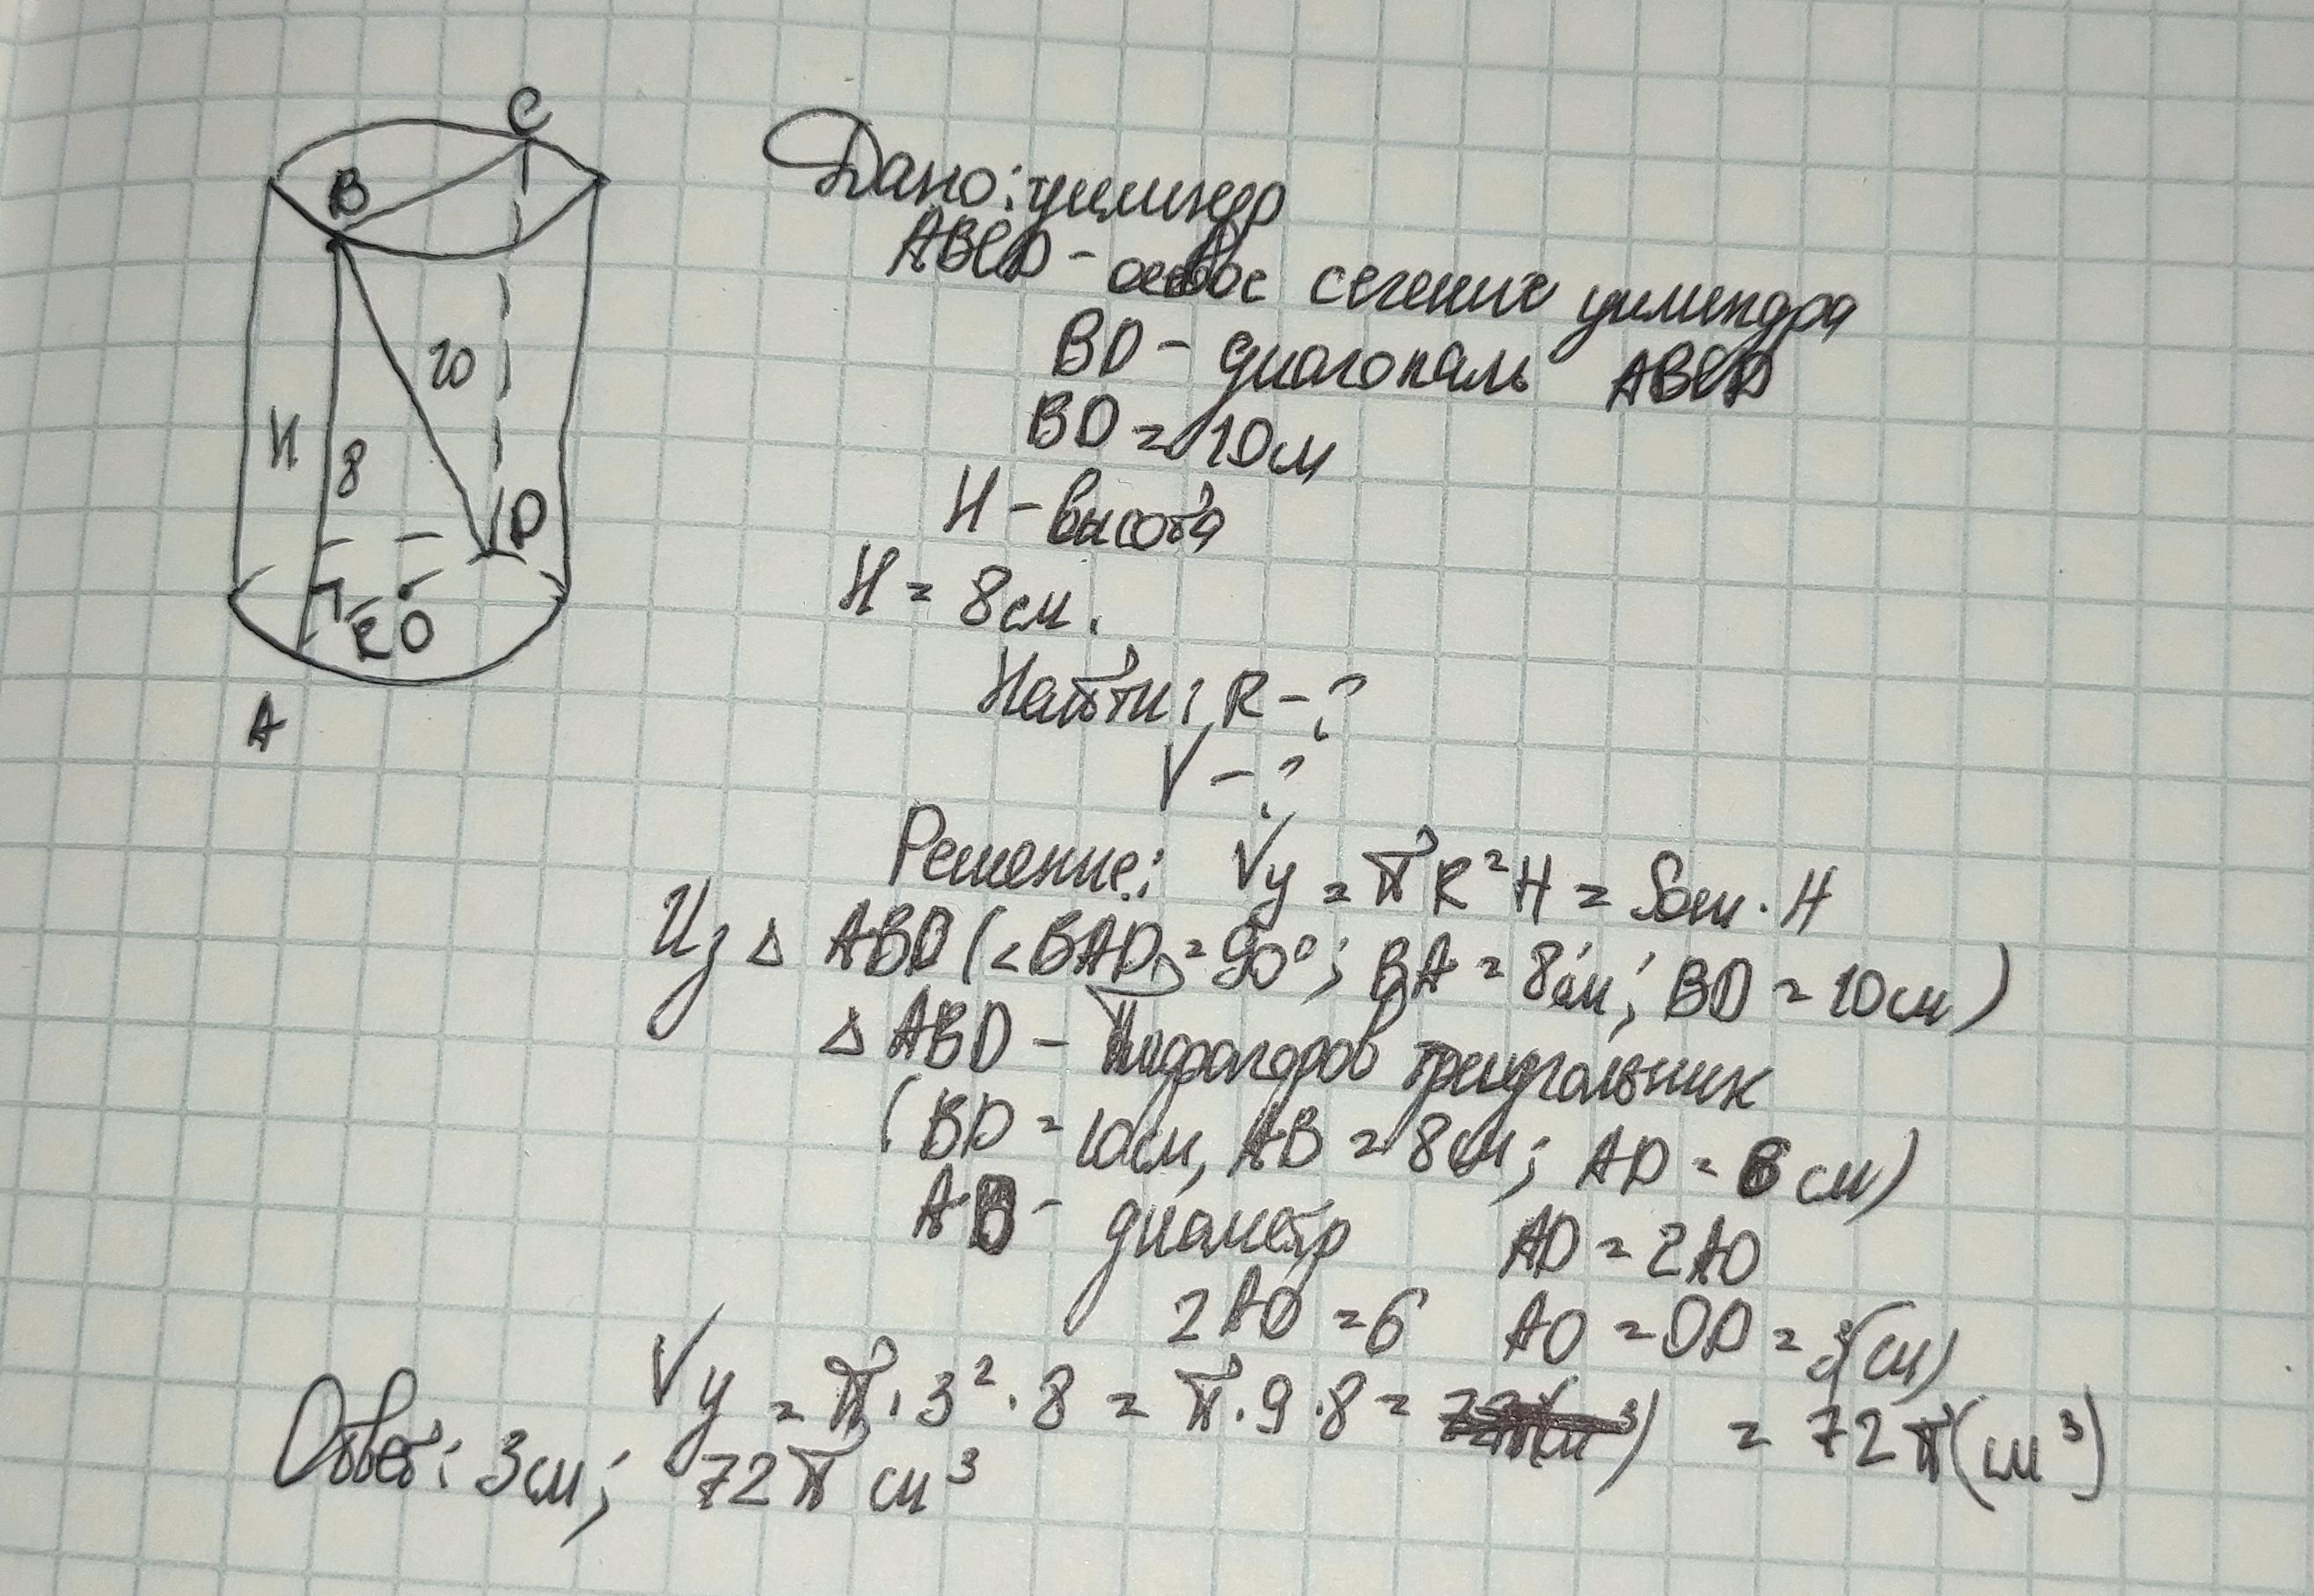 C
B
10
H
8
D
R O
A
Дано: цилиндр
ABCD - осевое сечение цилиндра
BD - диагональ ABCD
BD = 10см
H - высота
H = 8см.
Найти: R - ?
V - ?
Решение: Vц = πR²H = Sосн · H
Из △ ABD (∠BAD = 90°; BA = 8см; BD = 10см)
△ ABD - Пифагоров треугольник
(BD = 10см, AB = 8см; AD = 6 см)
AD - диаметр AD = 2AO
2AO = 6 AO = OD = 3(см)
Vц = π · 3² · 8 = π · 9 · 8 = = 72π(см³)
Ответ: 3см; 72π см³